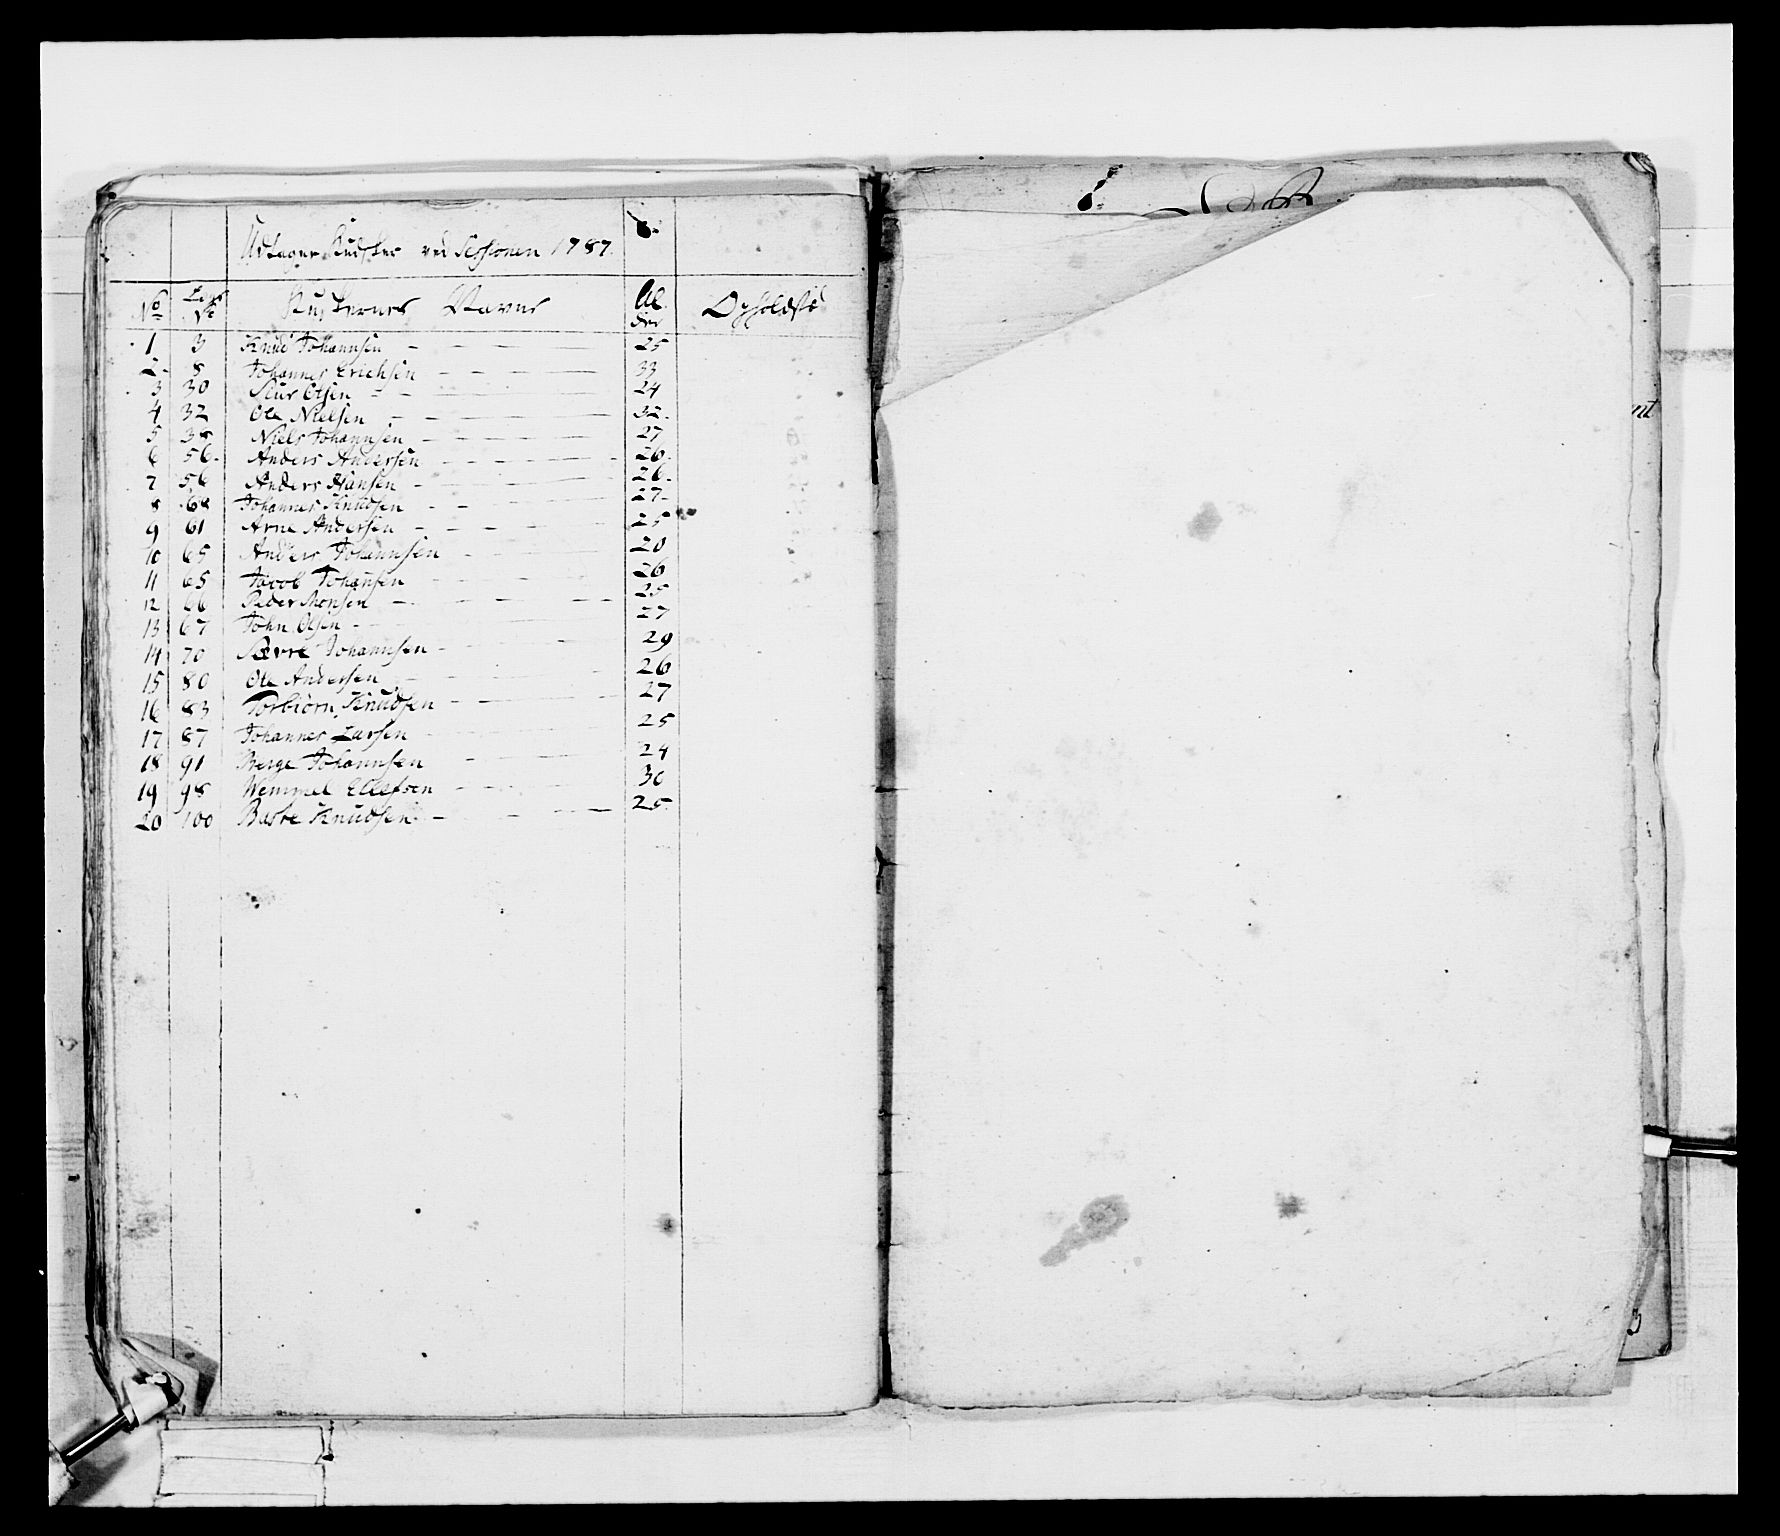 Udtagne Kudsker ved Sessionen 1787.
No Lægs No Kuskernes Navne Alder Opholdsted
1 3 Knud Johannsen 25
2 8 Johannes Erichsen 33
3 30 Siur Olsen 24
4 32 Ole Nielsen 32.
5 38 Niels Johannsen 27
6 56. Anders Andersen 26.
7 56 Anders Hansen 26.
8 68 Johannes Knudsen 27
9 61 Arne Andersen 25
10 65 Anders Johannsen 20
11 65 Jacob Johansen 26
12 66 Peder Monsen 25
13 67 John Olsen 27
14 70 Johannsen 29
15 80 Ole Andersen 26
16 83 Torbiörn Knudsen 27
17 87 Johannes Larsen 25
18 91 Berge Johannsen 24
19 98 Wemmel Ellefsen 30
20 100 Baste Knudsen 25.